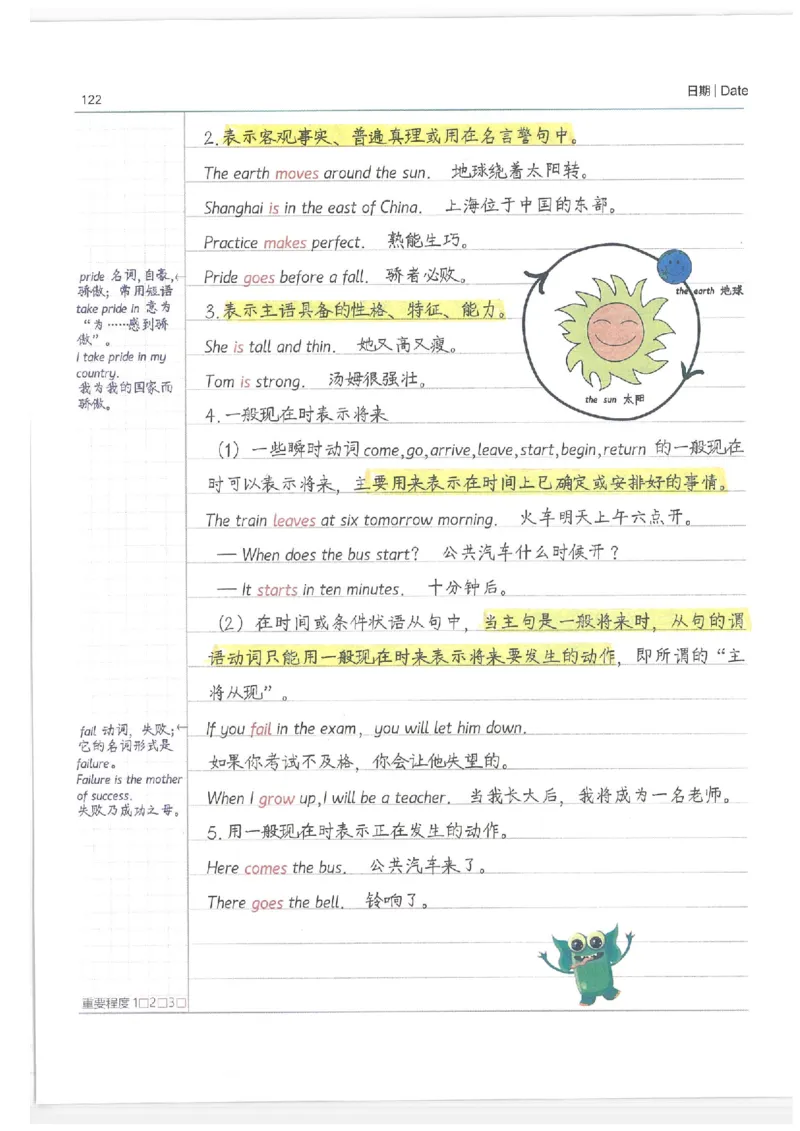 122
日期 | Date
2. 表示客观事实、普遍真理或用在名言警句中。
The earth moves around the sun. 地球绕着太阳转。
Shanghai is in the east of China. 上海位于中国的东部。
Practice makes perfect. 熟能生巧。
Pride goes before a fall. 骄者必败。
pride 名词, 自豪,←
骄傲；常用短语
take pride in 意为
“为……感到骄
傲”。
I take pride in my
country.
我为我的国家而
骄傲。
the earth 地球
the sun 太阳
3. 表示主语具备的性格、特征、能力。
She is tall and thin. 她又高又瘦。
Tom is strong. 汤姆很强壮。
4. 一般现在时表示将来
（1）一些瞬时动词 come,go,arrive,leave,start,begin,return 的一般现在
时可以表示将来，主要用来表示在时间上已确定或安排好的事情。
The train leaves at six tomorrow morning. 火车明天上午六点开。
— When does the bus start? 公共汽车什么时候开？
— It starts in ten minutes. 十分钟后。
（2）在时间或条件状语从句中，当主句是一般将来时，从句的谓
语动词只能用一般现在时来表示将来要发生的动作，即所谓的“主
将从现”。
If you fail in the exam, you will let him down.
如果你考试不及格，你会让他失望的。
fail 动词, 失败;←
它的名词形式是
failure。
Failure is the mother
of success.
失败乃成功之母。
When I grow up,I will be a teacher. 当我长大后，我将成为一名老师。
5. 用一般现在时表示正在发生的动作。
Here comes the bus. 公共汽车来了。
There goes the bell. 铃响了。
重要程度 1□2□3□